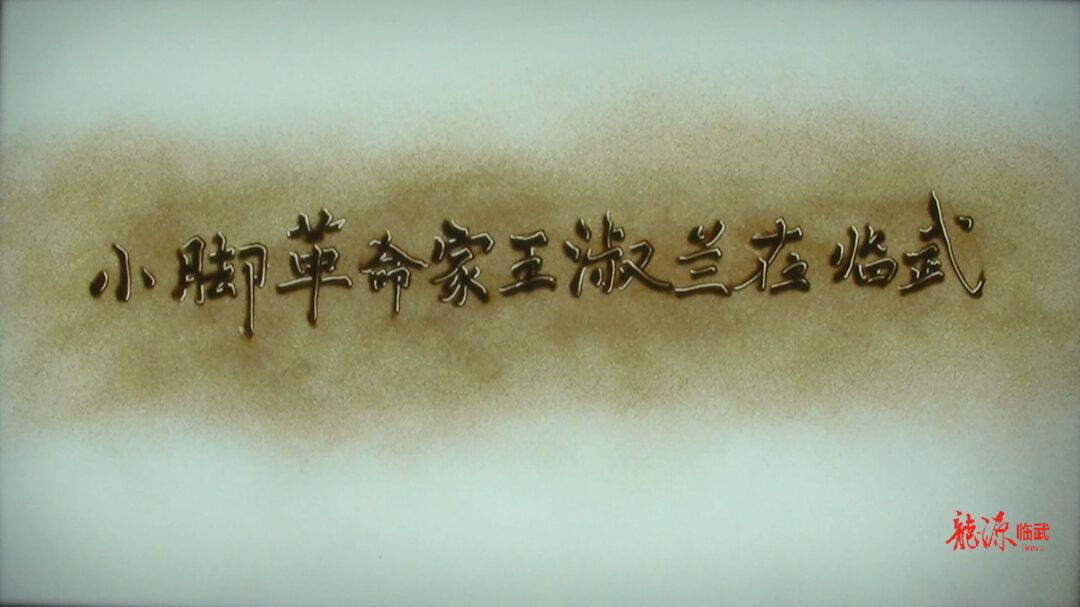 小脚革命家王淑兰在临武
龍源临武